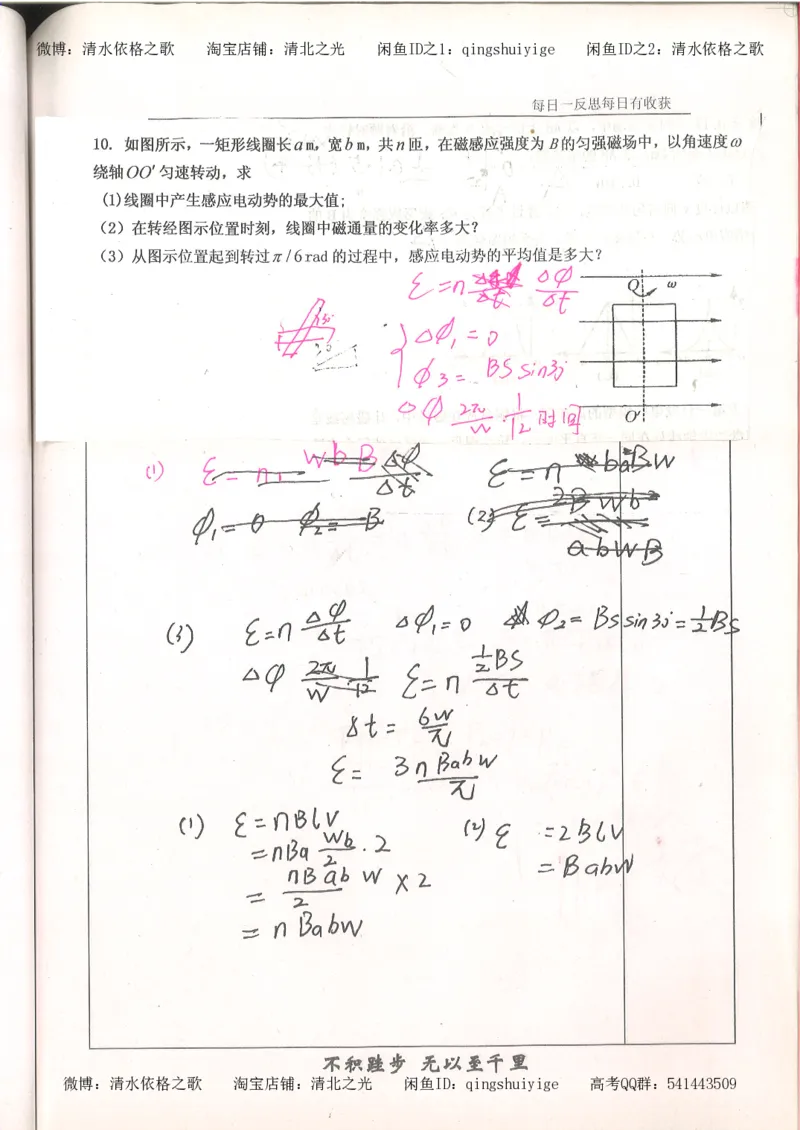 微博：清水依格之歌 淘宝店铺：清北之光 闲鱼ID之1：qingshuiyige 闲鱼ID之2：清水依格之歌
每日一反思每日有收获
10. 如图所示，一矩形线圈长am，宽bm，共n匝，在磁感应强度为B的匀强磁场中，以角速度ω
绕轴OO′匀速转动，求
(1)线圈中产生感应电动势的最大值;
（2）在转经图示位置时刻，线圈中磁通量的变化率多大?
（3）从图示位置起到转过π/6rad的过程中，感应电动势的平均值是多大?
ε=n Δφ/Δt
Q ω
Δφ₁=0
φ3= BSsin3
Δφ 2π/w · 1/12 时间
O′
(1) ε=n wbB Δφ/Δt ε=n baBw
φ₁=0 φ₂=B (2) ε= 2Bwb
abwB
(3) ε=n Δφ/Δt Δφ₁=0 φ₂=BSsin30=½BS
Δφ 2π/w 1/12 ε=n ½BS/Δt
δt= 6w/π
ε= 3nBabw/π
(1) ε=nBLV (2) ε =2BLV
=nBa wb/2 ·2 =Babw
= nBabw/2 ×2
= nBabw
不积跬步 无以至千里
微博：清水依格之歌 淘宝店铺：清北之光 闲鱼ID：qingshuiyige 高考QQ群：541443509